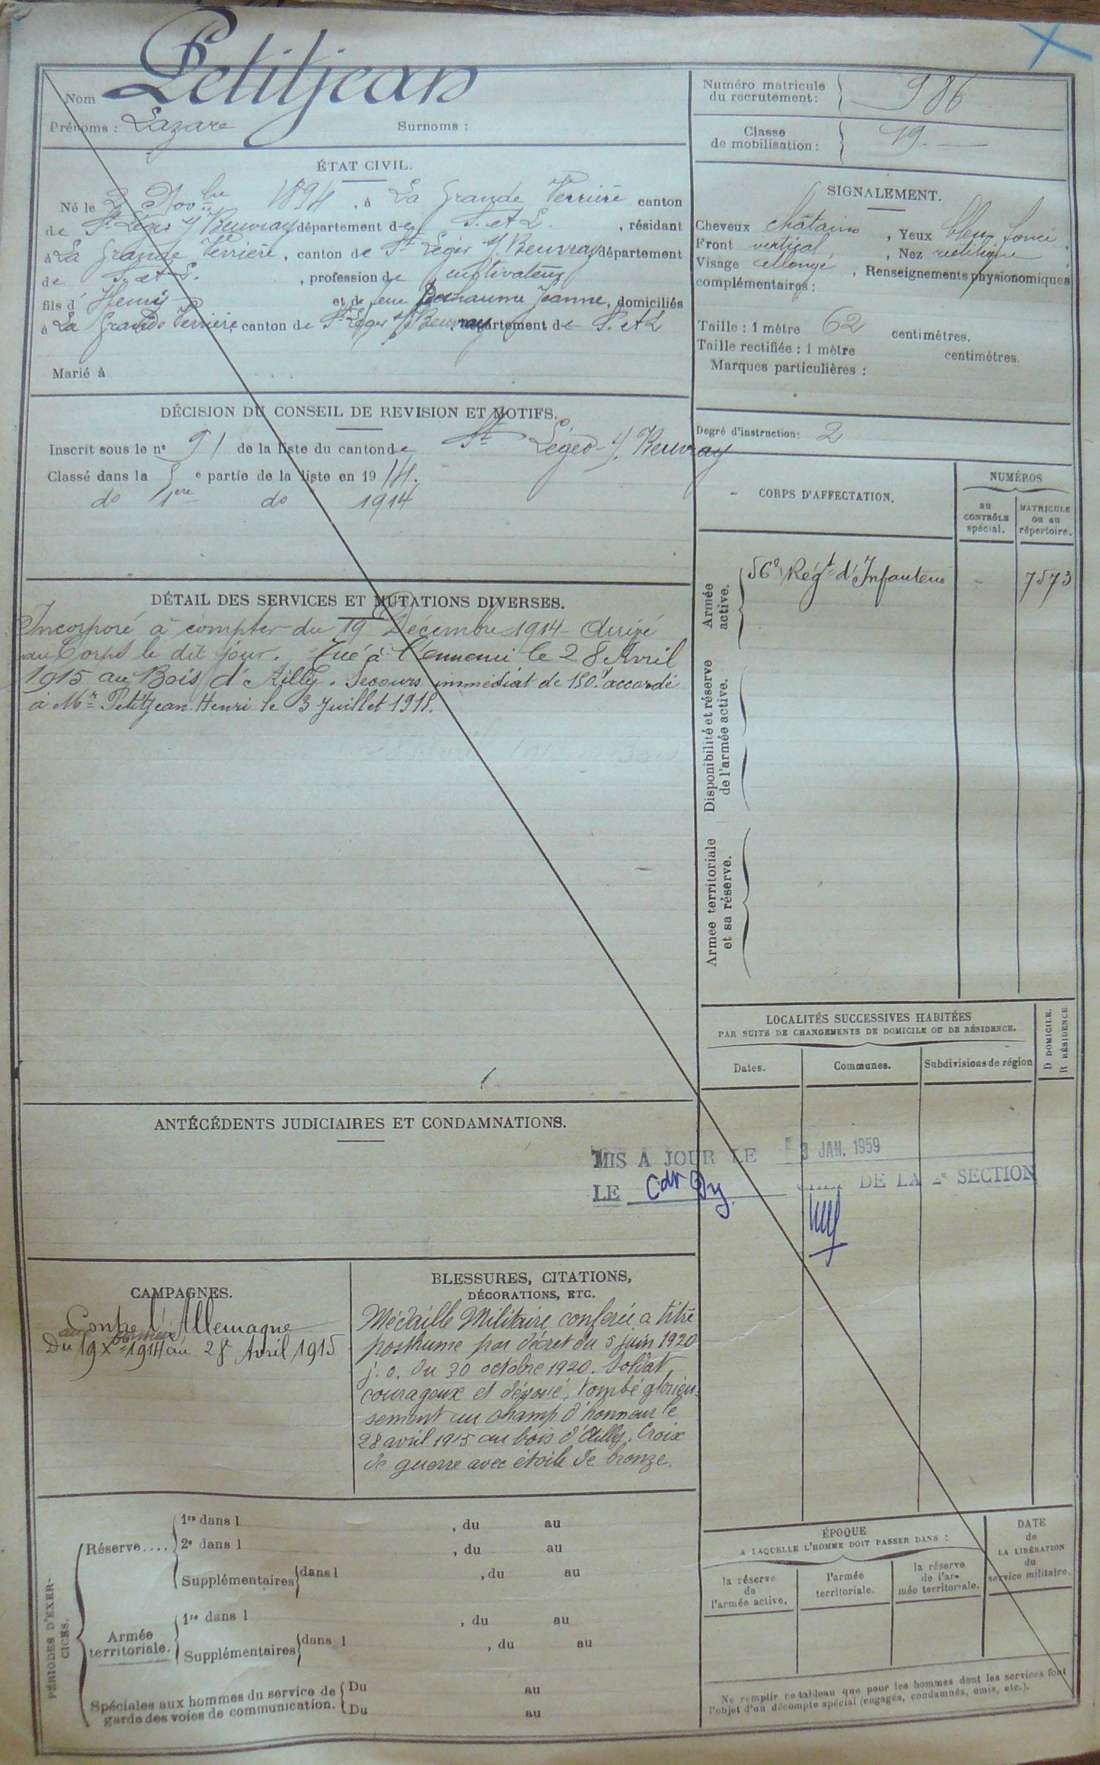 Nom Petitjean
Prénoms : Lazare Surnoms :
Numéro matricule du recrutement : 986
Classe de mobilisation : 19
ÉTAT CIVIL.
Né le 2 Novbre 1894, à La Grande Verrière canton
de St Léger s/ Beuvray département de S. et L. , résidant
à La Grande Verrière, canton de St Léger s/ Beuvray département
de S. et L. , profession de cultivateur
fils d' Henri et de feue Jeanne, domiciliés
à La Grande Verrière canton de St Léger s/ Beuvray département de S. et L
Marié à
SIGNALEMENT.
Cheveux châtains , Yeux bleu foncé ,
Front vertical , Nez rectiligne
Visage allongé , Renseignements physionomiques
complémentaires :
Taille : 1 mètre 62 centimètres.
Taille rectifiée : 1 mètre centimètres.
Marques particulières :
Degré d'instruction : 2
DÉCISION DU CONSEIL DE REVISION ET MOTIFS.
Inscrit sous le no 91 de la liste du canton de St Léger s/ Beuvray
Classé dans la 5e partie de la liste en 1914.
do 1ere do 1914
CORPS D'AFFECTATION.
NUMÉROS
AU CONTRÔLE spécial.
MATRICULE OU AU répertoire.
Armée active.
56e Régt d'Infanterie - 7573
Disponibilité et réserve de l'armée active.
Armée territoriale et sa réserve.
DÉTAIL DES SERVICES ET MUTATIONS DIVERSES.
Incorporé à compter du 19 Décembre 1914 - Arrivé
au Corps le dit jour. Tué à l'ennemi le 28 Avril
1915 au Bois d'Ailly. Secours immédiat de 150f accordé
à Mr Petitjean Henri le 3 Juillet 1918.
LOCALITÉS SUCCESSIVES HABITÉES
PAR SUITE DE CHANGEMENTS DE DOMICILE OU DE RÉSIDENCE.
Dates. Communes. Subdivisions de région
D DOMICILE.
R RÉSIDENCE
ANTÉCÉDENTS JUDICIAIRES ET CONDAMNATIONS.
MIS A JOUR LE 3 JAN. 1959
LE DE LA 2e SECTION
CAMPAGNES.
Contre l'Allemagne
Du 19 Xbre 1914 au 28 Avril 1915
BLESSURES, CITATIONS,
DÉCORATIONS, ETC.
Médaille Militaire conférée à titre
posthume par décret du 5 juin 1920
j. o. du 30 octobre 1920. Soldat
courageux et dévoué, tombé glorieu-
sement au champ d'honneur le
28 avril 1915 au bois d'Ailly. Croix
de guerre avec étoile de bronze.
PÉRIODES D'EXERCICES.
Réserve....
1re dans l , du au
2e dans l , du au
Supplémentaires dans l , du au
Armée territoriale.
1re dans l , du au
Supplémentaires dans l , du au
Spéciales aux hommes du service de garde des voies de communication.
Du au
Du au
ÉPOQUE
A LAQUELLE L'HOMME DOIT PASSER DANS :
la réserve de l'armée active.
l'armée territoriale.
la réserve de l'armée territoriale.
DATE de LA LIBÉRATION du service militaire.
Ne remplir ce tableau que pour les hommes dont les services font
l'objet d'un décompte spécial (engagés, condamnés, omis, etc.).